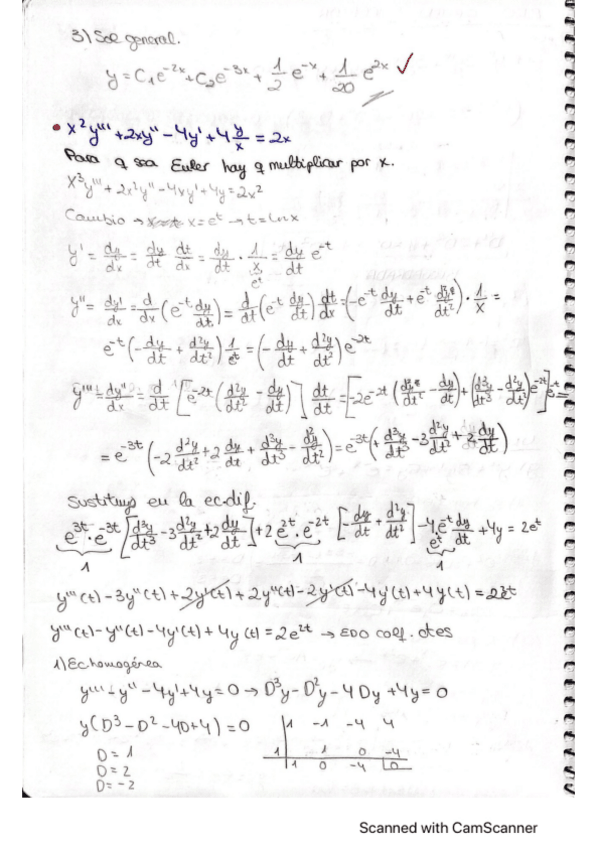 3) Sol general.
y = C₁e^-2x + C₂e^-3x + 1/2 e^-x + 1/20 e^2x ✓
• x²y''' + 2xy'' - 4y' + 4 y/x = 2x
Para q sea Euler hay q multiplicar por x.
x³y''' + 2x²y'' - 4xy' + 4y = 2x²
Cambio → x = e^t → t = ln x
y' = dy/dx = dy/dt dt/dx = dy/dt · 1/x = dy/dt e^-t
e^t
y'' = dy'/dx = d/dx (e^-t dy/dt) = d/dt (e^-t dy/dt) dt/dx = (-e^-t dy/dt + e^-t d²y/dt²) · 1/x =
e^-t (-dy/dt + d²y/dt²) 1/e^t = (-dy/dt + d²y/dt²) e^-2t
y''' = dy''/dx = d/dt [e^-2t (d²y/dt² - dy/dt)] dt/dx = [-2e^-2t (d²y/dt² - dy/dt) + (d³y/dt³ - d²y/dt²) e^-2t] e^-t =
= e^-3t (-2 d²y/dt² + 2 dy/dt + d³y/dt³ - d²y/dt²) = e^-3t (+ d³y/dt³ - 3 d²y/dt² + 2 dy/dt)
Sustituyo en la ec.dif.
e^3t · e^-3t [d³y/dt³ - 3 d²y/dt² + 2 dy/dt] + 2 e^2t · e^-2t [-dy/dt + d²y/dt²] - 4 e^-t e^t dy/dt + 4y = 2e^t
1 1 1
y'''(t) - 3y''(t) + 2y'(t) + 2y''(t) - 2y'(t) - 4y'(t) + 4y(t) = 2e^2t
y'''(t) - y''(t) - 4y'(t) + 4y(t) = 2e^2t → EDO coef. ctes
1) Ec homogénea
y''' - y'' - 4y' + 4y = 0 → D³y - D²y - 4Dy + 4y = 0
y(D³ - D² - 4D + 4) = 0
1 -1 -4 4
1 1 0 -4
1 0 -4 0
D = 1
D = 2
D = -2
Scanned with CamScanner